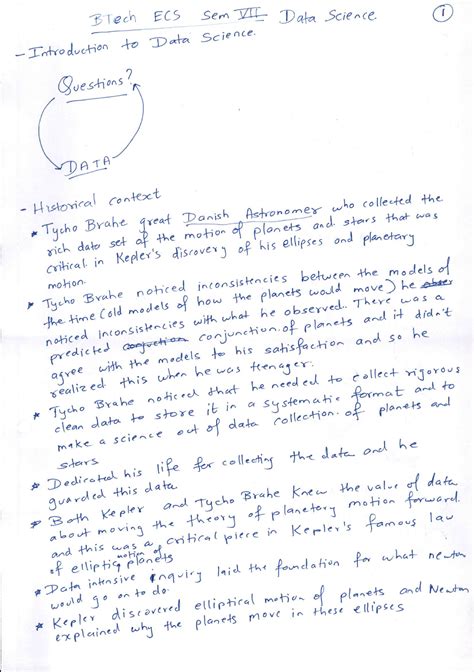 BTech ECS Sem VII Data Science ①
- Introduction to Data Science.
Questions?
DATA
- Historical context
* Tycho Brahe great Danish Astronomer who collected the
rich data set of the motion of planets and stars that was
critical in Kepler's discovery of his ellipses and planetary
motion.
* Tycho Brahe noticed inconsistencies between the models of
the time (old models of how the planets would move) he
noticed inconsistencies with what he observed. There was a
predicted conjunction of planets and it didn't
agree with the models to his satisfaction and so he
realized this when he was teenager.
* Tycho Brahe noticed that he needed to collect rigorous
clean data to store it in a systematic format and to
make a science out of data collection of planets and
stars
* Dedicated his life for collecting the data and he
guarded this data
* Both Kepler and Tycho Brahe Knew the value of data
about moving the theory of planetary motion forward.
and this was a critical piece in Kepler's famous law
of elliptic motion of planets
* Data intensive inquiry laid the foundation for what newton
would go on to do.
* Kepler discovered elliptical motion of planets and Newton
explained why the planets move in these ellipses